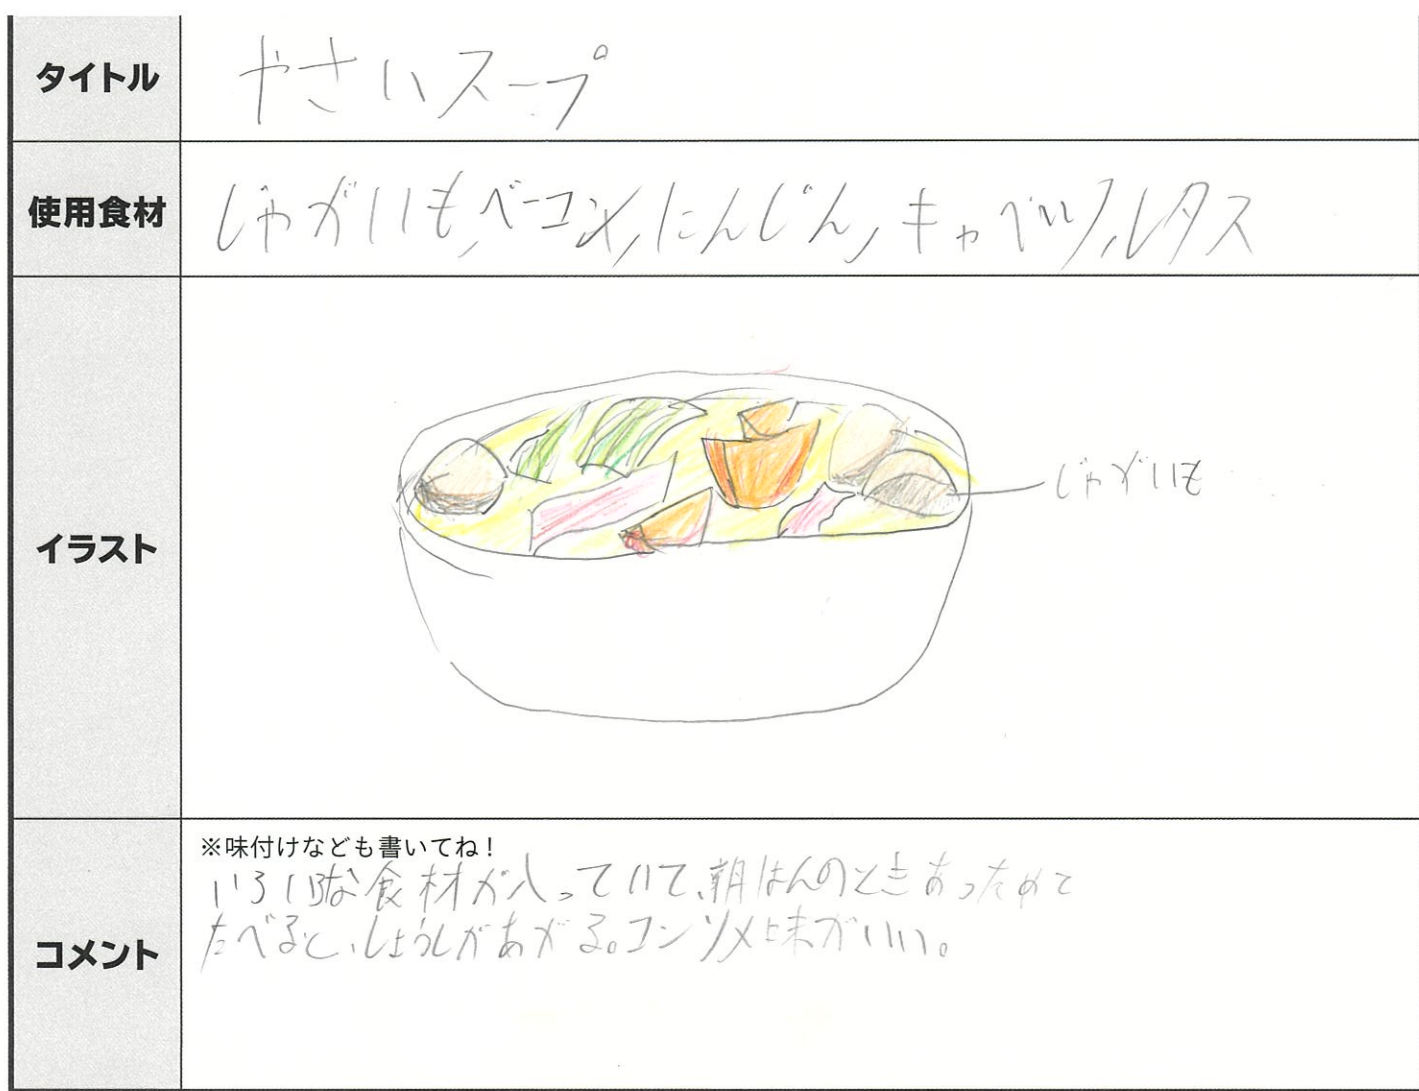 タイトル
やさいスープ
使用食材
じゃがいも,ベーコン,にんじん,キャベツ,レタス
イラスト
じゃがいも
コメント
※味付けなども書いてね!
いろいろな食材が入っていて、朝はんのときあっためて
たべると、しょうしがあがる。コンソメ味がいい。